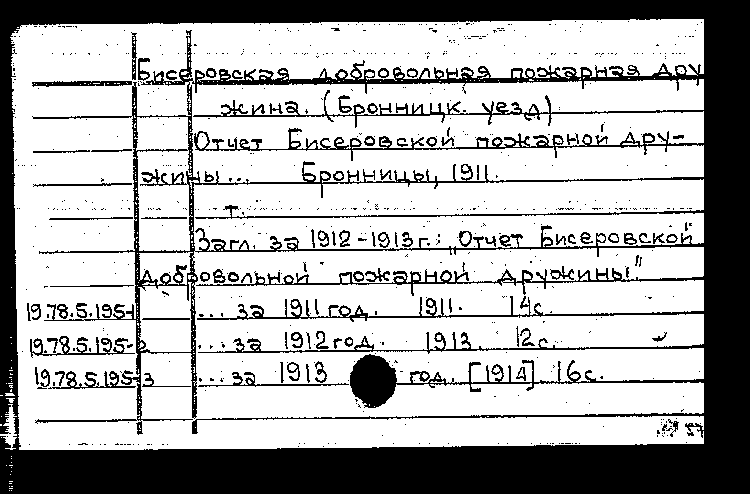 Бисеровская добровольная пожарная дру
жина. (Бронницк. уезд)
Отчет Бисеровской пожарной дру-
жины... Бронницы, 1911.
т.
Загл. за 1912-1913г.: „Отчет Бисеровской
добровольной пожарной дружины."
19.78.5.195-1 ... за 1911 год. 1911. 14с.
19.78.5.195-2 ... за 1912 год. 1913. 12с.
19.78.5.195-3 ... за 1913 год. [1914]. 16с.